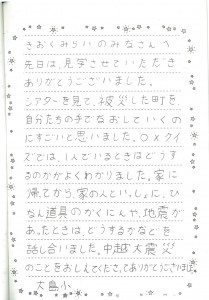 きおくみらいのみなさんへ
先日は、見学させていただき
ありがとうございました。
シアターを見て、被災した町を、
自分たちの手でなおしていくの
にすごいと思いました。○×クイ
ズでは、1人でいるときはどうす
るのかがよくわかりました。家に
帰てから、家の人といっしょに、ひ
なん道具のかくにんや、地震が
あったときは、どうするかなどを
話し合いました。中越大震災
のことをおしえてくださってありがとうございました。
大島小